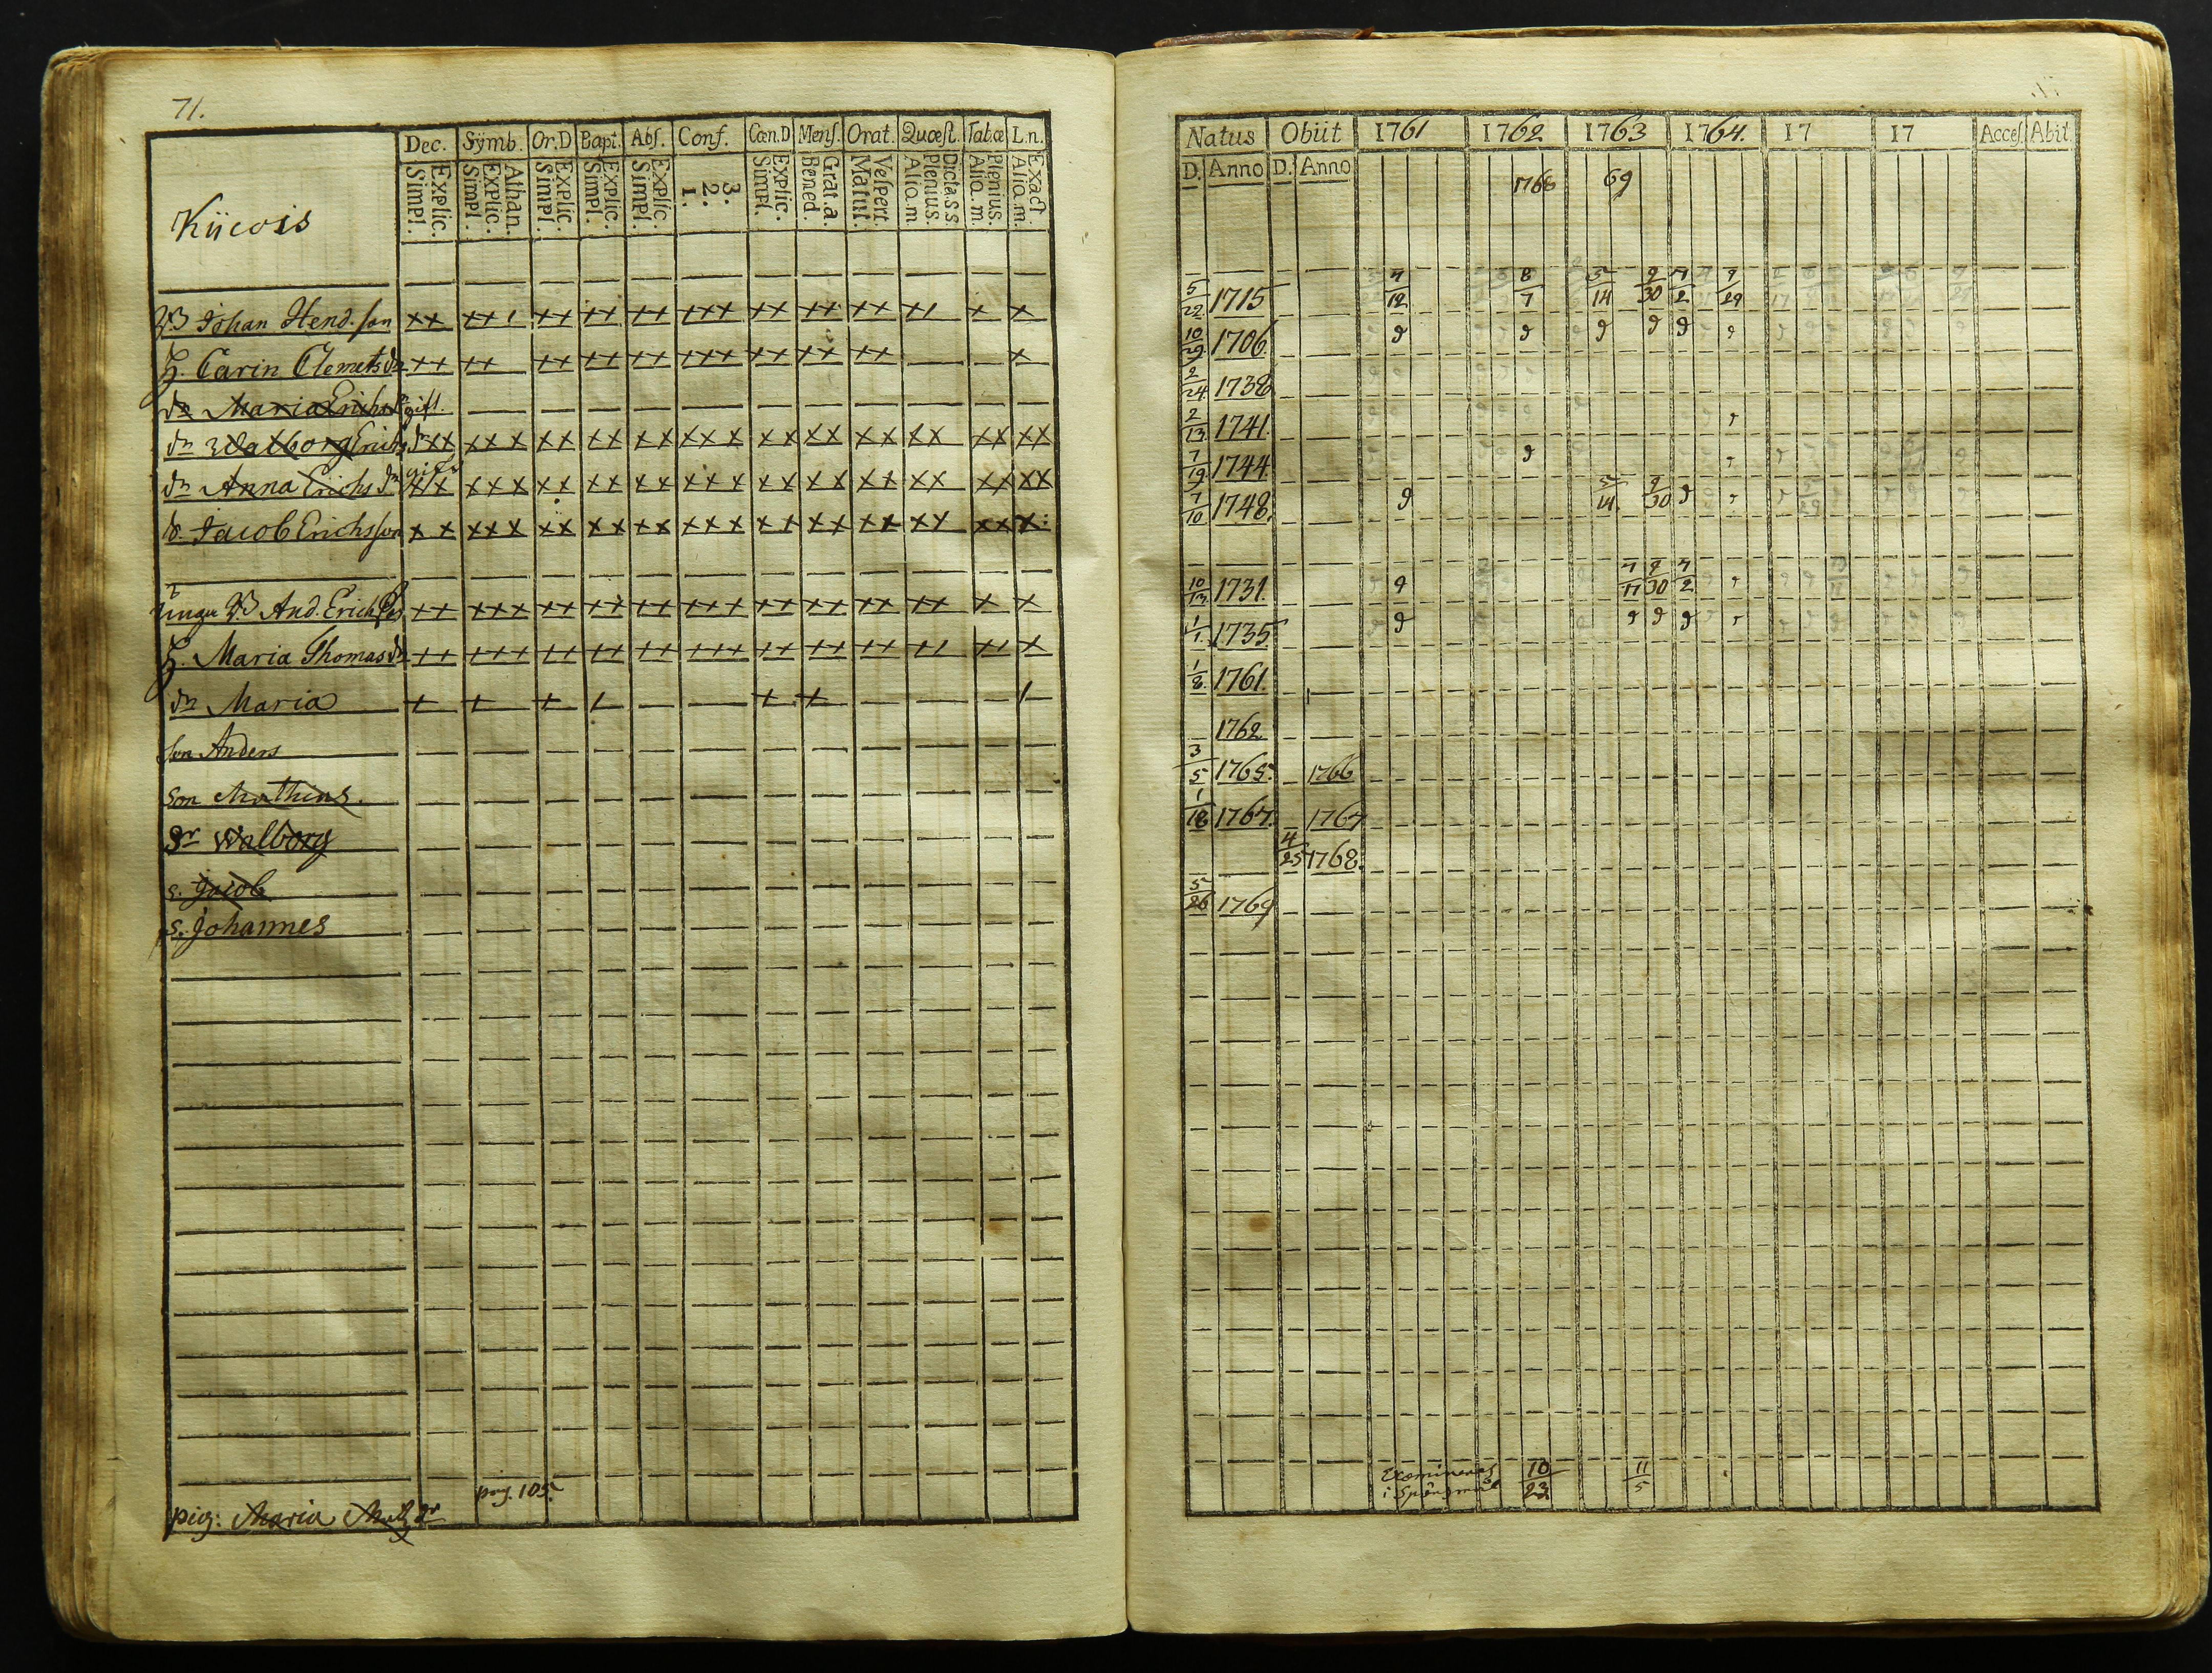 71.
Dec. Sÿmb. Or.D Bapt. Abſ. Conf. Cœn.D Menſ. Orat. Quæſt. Tab.æ L.n.
Explic. Simpl. Athan. Explic. Simpl. Explic. Simpl. Explic. Simpl. Explic. Simpl. 3. 2. 1. Explic. Simpl. Grat.a. Bened. Veſpert. Matut. Dicta.s.s. Plenius. Alio.m. Plenius. Alio.m. Exact. Alio.m.
Kücois
B Johan Hend.son xx xx 1 xx xx xx xxx xx xx xx x1 x x
H. Carin Clemets dr xx xx xx xx xx xxx xx xx xx x
dr Maria Erichs dr gift.
dr Walborg Erichs dr xx xxx xx xx xx xxx xx xx xx xx xx xx
dr Anna Erichs dr gift xx xxx xx xx xx xxx xx xx xx xx xx xx
s. Jacob Erichsson xx xxx xx xx xx xxx xx xx xx xx xx x:
unga B And. Erichss xx xxx xx xx xx xxx xx xx xx xx x x
H. Maria Thomas dr xx xxx xx xx xx xxx xx xx xx x1 x1 x
dr Maria x x x 1 x x 1
son Anders
son Mathias.
dr Walborg
s. Jacob
s. Johannes
pag. 105.
pig: Maria Matz dr
Natus Obiit 1761 1762 1763 1764. 17 17 Acceſ. Abit
D. Anno D. Anno
1768 69
5/22 1715 7/12 8/7 5/14 9/30 7/2 9/29
10/29 1706
2/24 1738
2/13 1741
7/19 1744
7/10 1748. 5/14 9/30
10/13 1731 7/17 9/30 7/2
1/1 1735
1/8 1761.
1762
3/5 1765. 1766
1/18 1767. 1767
4/25 1768.
5/26 1769
Examineras 10/23 11/5